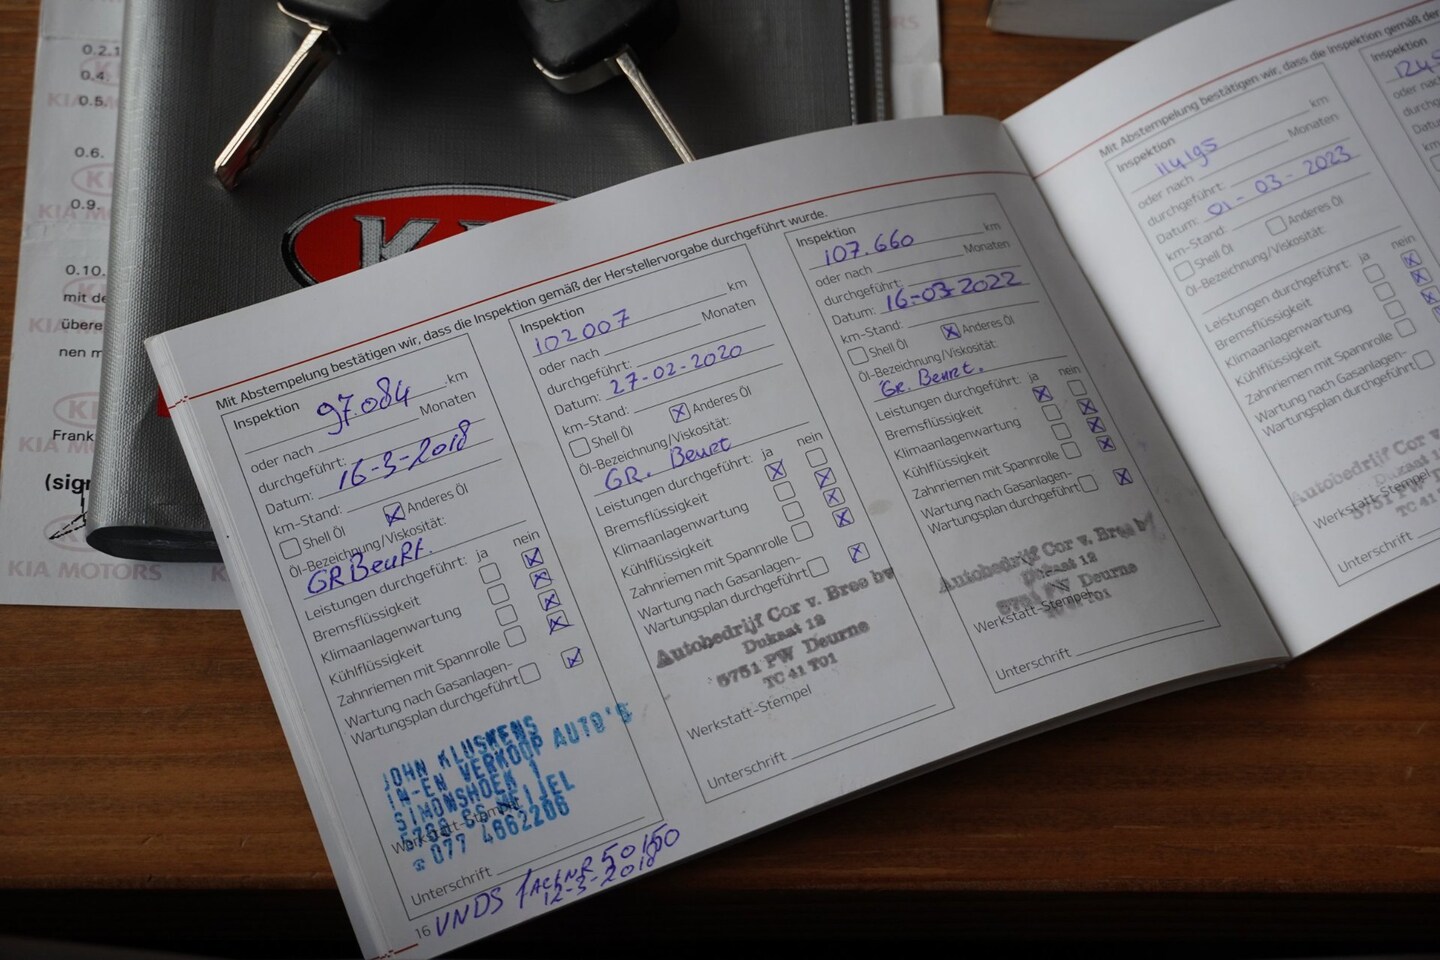 0.2.1
0.4.
0.5.
0.6.
0.9.
0.10.
mit de
übere
nen m
Frank
(sign
KIA MOTORS
Mit Abstempelung bestätigen wir, dass die Inspektion gemäß der Herstellervorgabe durchgeführt wurde.
Inspektion
97.084 km
oder nach Monaten
durchgeführt:
Datum: 16-3-2018
km-Stand:
Shell Öl Anderes Öl
Öl-Bezeichnung/Viskosität:
GR BeuRt.
Leistungen durchgeführt: ja nein
Bremsflüssigkeit
Klimaanlagenwartung
Kühlflüssigkeit
Zahnriemen mit Spannrolle
Wartung nach Gasanlagen-
Wartungsplan durchgeführt
JOHN KLUSKENS
IN-EN VERKOOP AUTO'S
SIMONSHOEK 1
5768 CS MEIJEL
077 4662206
Werkstatt-Stempel
Unterschrift
16 VNDS factNR 50150
12-3-2018
Inspektion
102007 km
oder nach Monaten
durchgeführt:
Datum: 27-02-2020
km-Stand:
Shell Öl Anderes Öl
Öl-Bezeichnung/Viskosität:
GR. Beurt
Leistungen durchgeführt: ja nein
Bremsflüssigkeit
Klimaanlagenwartung
Kühlflüssigkeit
Zahnriemen mit Spannrolle
Wartung nach Gasanlagen-
Wartungsplan durchgeführt
Autobedrijf Cor v. Bree bv
Dukaat 12
5751 PW Deurne
TC 41 T01
Werkstatt-Stempel
Unterschrift
Inspektion
107.660 km
oder nach Monaten
durchgeführt:
Datum: 16-03-2022
km-Stand:
Shell Öl Anderes Öl
Öl-Bezeichnung/Viskosität:
Gr. Beurt.
Leistungen durchgeführt: ja nein
Bremsflüssigkeit
Klimaanlagenwartung
Kühlflüssigkeit
Zahnriemen mit Spannrolle
Wartung nach Gasanlagen-
Wartungsplan durchgeführt
Autobedrijf Cor v. Bree bv
Dukaat 12
5751 PW Deurne
Werkstatt-Stempel
Unterschrift
Mit Abstempelung bestätigen wir, dass die Inspektion gemäß der
Inspektion
114195 km
oder nach Monaten
durchgeführt:
Datum: 01-03-2023
km-Stand:
Shell Öl Anderes Öl
Öl-Bezeichnung/Viskosität:
Leistungen durchgeführt: ja nein
Bremsflüssigkeit
Klimaanlagenwartung
Kühlflüssigkeit
Zahnriemen mit Spannrolle
Wartung nach Gasanlagen-
Wartungsplan durchgeführt
Autobedrijf Cor v.
Dukaat 1
5751 PW
TC 41
Werkstatt-Stempel
Unterschrift
Inspektion
oder nach
durchge
Datum:
km-